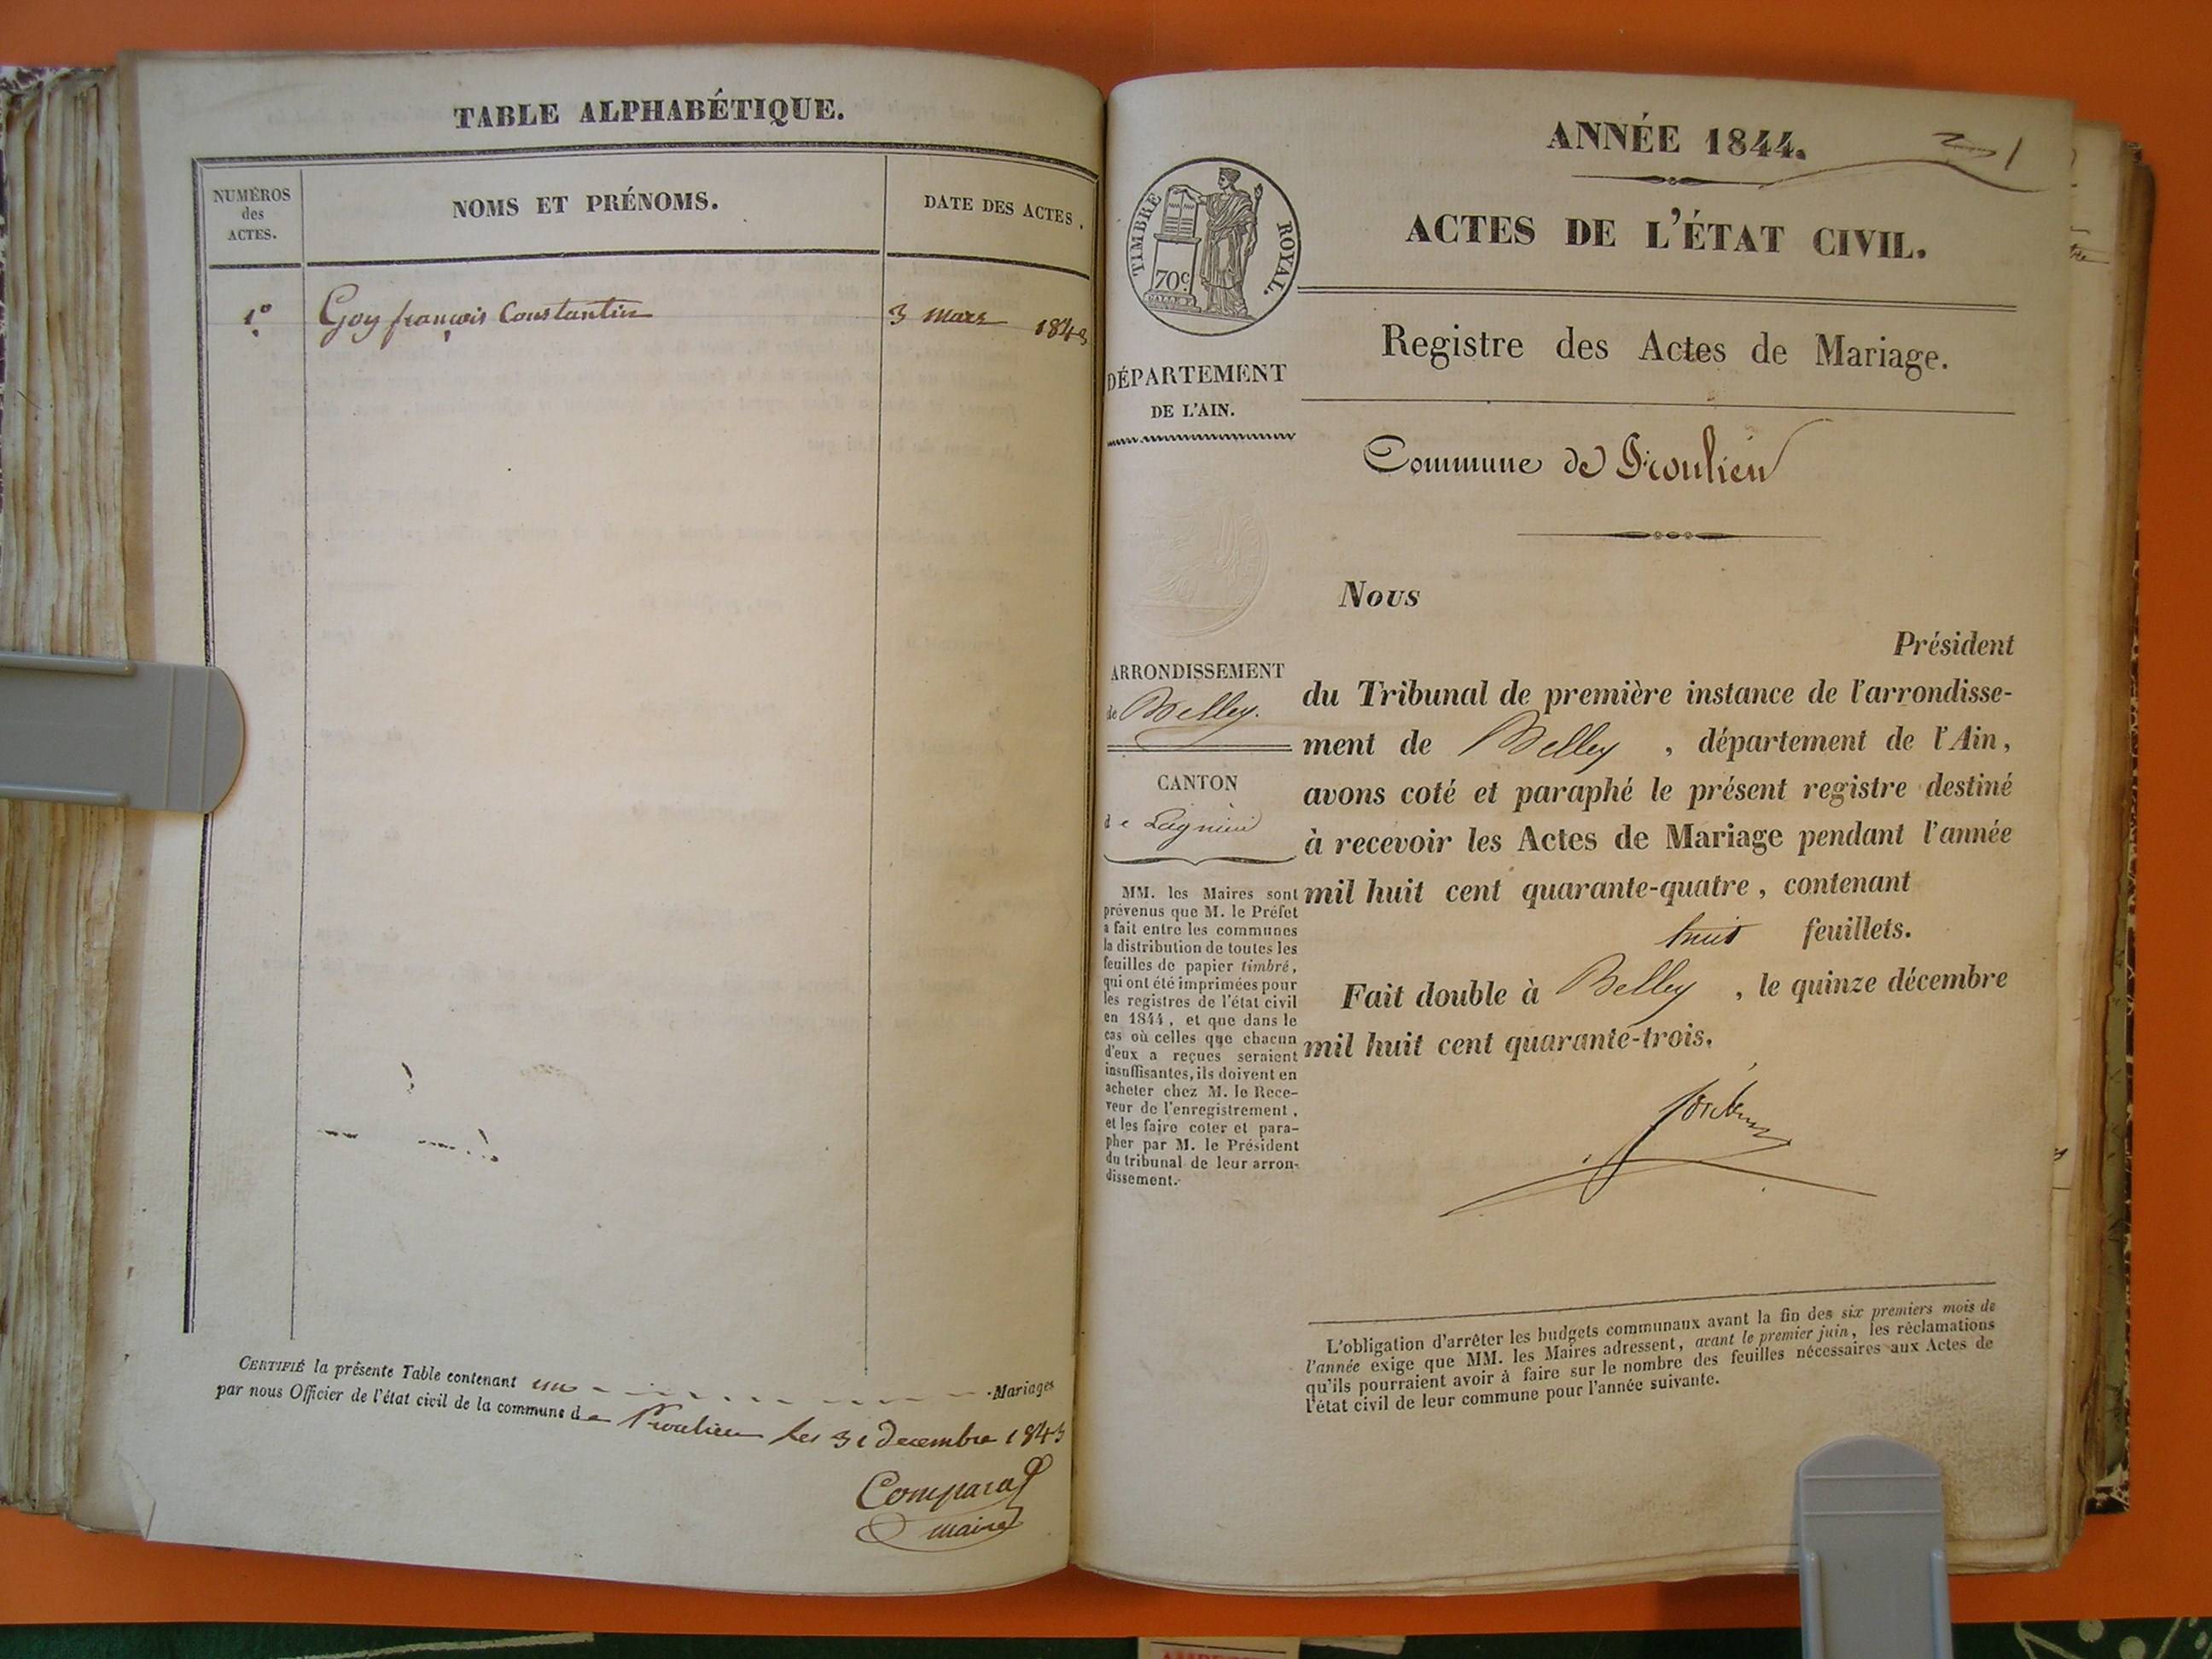 TABLE ALPHABÉTIQUE.
NUMÉROS
des
ACTES.
NOMS ET PRÉNOMS.
DATE DES ACTES.
1º
Goy françois Constantin
3 mars 1843
CERTIFIÉ la présente Table contenant un Mariages
par nous Officier de l'état civil de la commune de Proulieu les 31 decembre 1843
Comparat
maire
ANNÉE 1844.
1
ACTES DE L'ÉTAT CIVIL.
TIMBRE ROYAL.
70c
Registre des Actes de Mariage.
DÉPARTEMENT
DE L'AIN.
Commune de Proulieu
Nous
Président
ARRONDISSEMENT
de Belley.
CANTON
de Lagnieu
MM. les Maires sont
prévenus que M. le Préfet
a fait entre les communes
la distribution de toutes les
feuilles de papier timbré,
qui ont été imprimées pour
les registres de l'état civil
en 1844, et que dans le
cas où celles que chacun
d'eux a reçues seraient
insuffisantes, ils doivent en
acheter chez M. le Rece-
veur de l'enregistrement,
et les faire coter et para-
pher par M. le Président
du tribunal de leur arron-
dissement.
du Tribunal de première instance de l'arrondisse-
ment de Belley, département de l'Ain,
avons coté et paraphé le présent registre destiné
à recevoir les Actes de Mariage pendant l'année
mil huit cent quarante-quatre, contenant
huit feuillets.
Fait double à Belley, le quinze décembre
mil huit cent quarante-trois.
L'obligation d'arrêter les budgets communaux avant la fin des six premiers mois de
l'année exige que MM. les Maires adressent, avant le premier juin, les réclamations
qu'ils pourraient avoir à faire sur le nombre des feuilles nécessaires aux Actes de
l'état civil de leur commune pour l'année suivante.